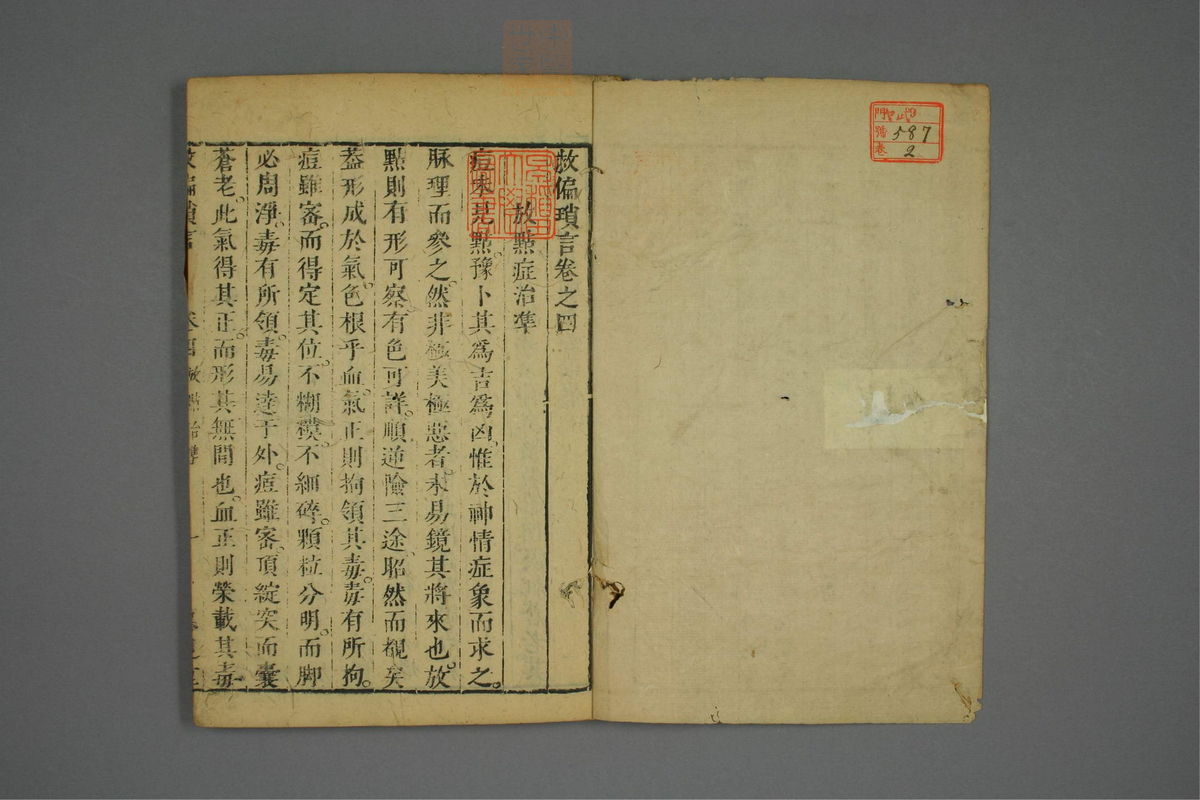 救偏瑣言卷之四
放點症治準
痘未見點。豫卜其爲吉爲凶。惟於神情症象而求之。
脉理而參之。然非極美極惡者。未易鏡其將來也。放
點則有形可察。有色可詳。順逆險三途。昭然而覩矣
蓋形成於氣。色根乎血。氣正則拘領其毒。毒有所拘。
痘雖密。而得定其位。不糊模。不細碎。顆粒分明。而脚
必周淨。毒有所領。毒易達于外。痘雖密。頂綻突而囊
蒼老。此氣得其正。而形其無間也。血正則榮載其毒
救偏瑣言
卷四 放點治準
一
門
號 587
卷 2